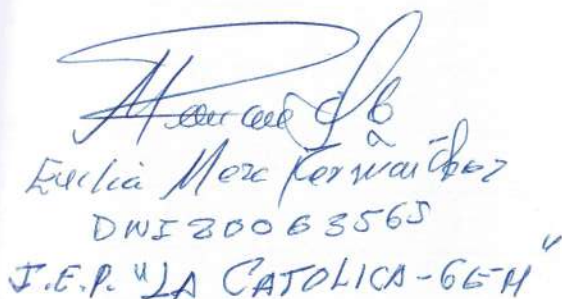 Emilia Meza Fernández
DNI 20063565
I.E.P. "LA CATOLICA-GEM"